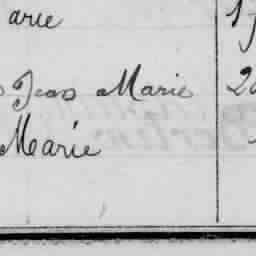 arie
Jean Marie 2
Marie